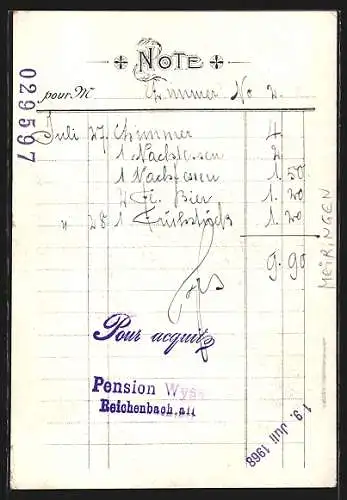 NOTE
pour M Zimmer No 2.
Juli 27. Zimmer 4.
1 Nachtessen 2.
1 Nachtessen 1.50
2 Fl. Bier 1.20
" 28. 1 Frühstück 1.20
9.90
Pour acquit
Pension Wyss
Reichenbach.all
029597
MEIRINGEN
19. Juli 1968